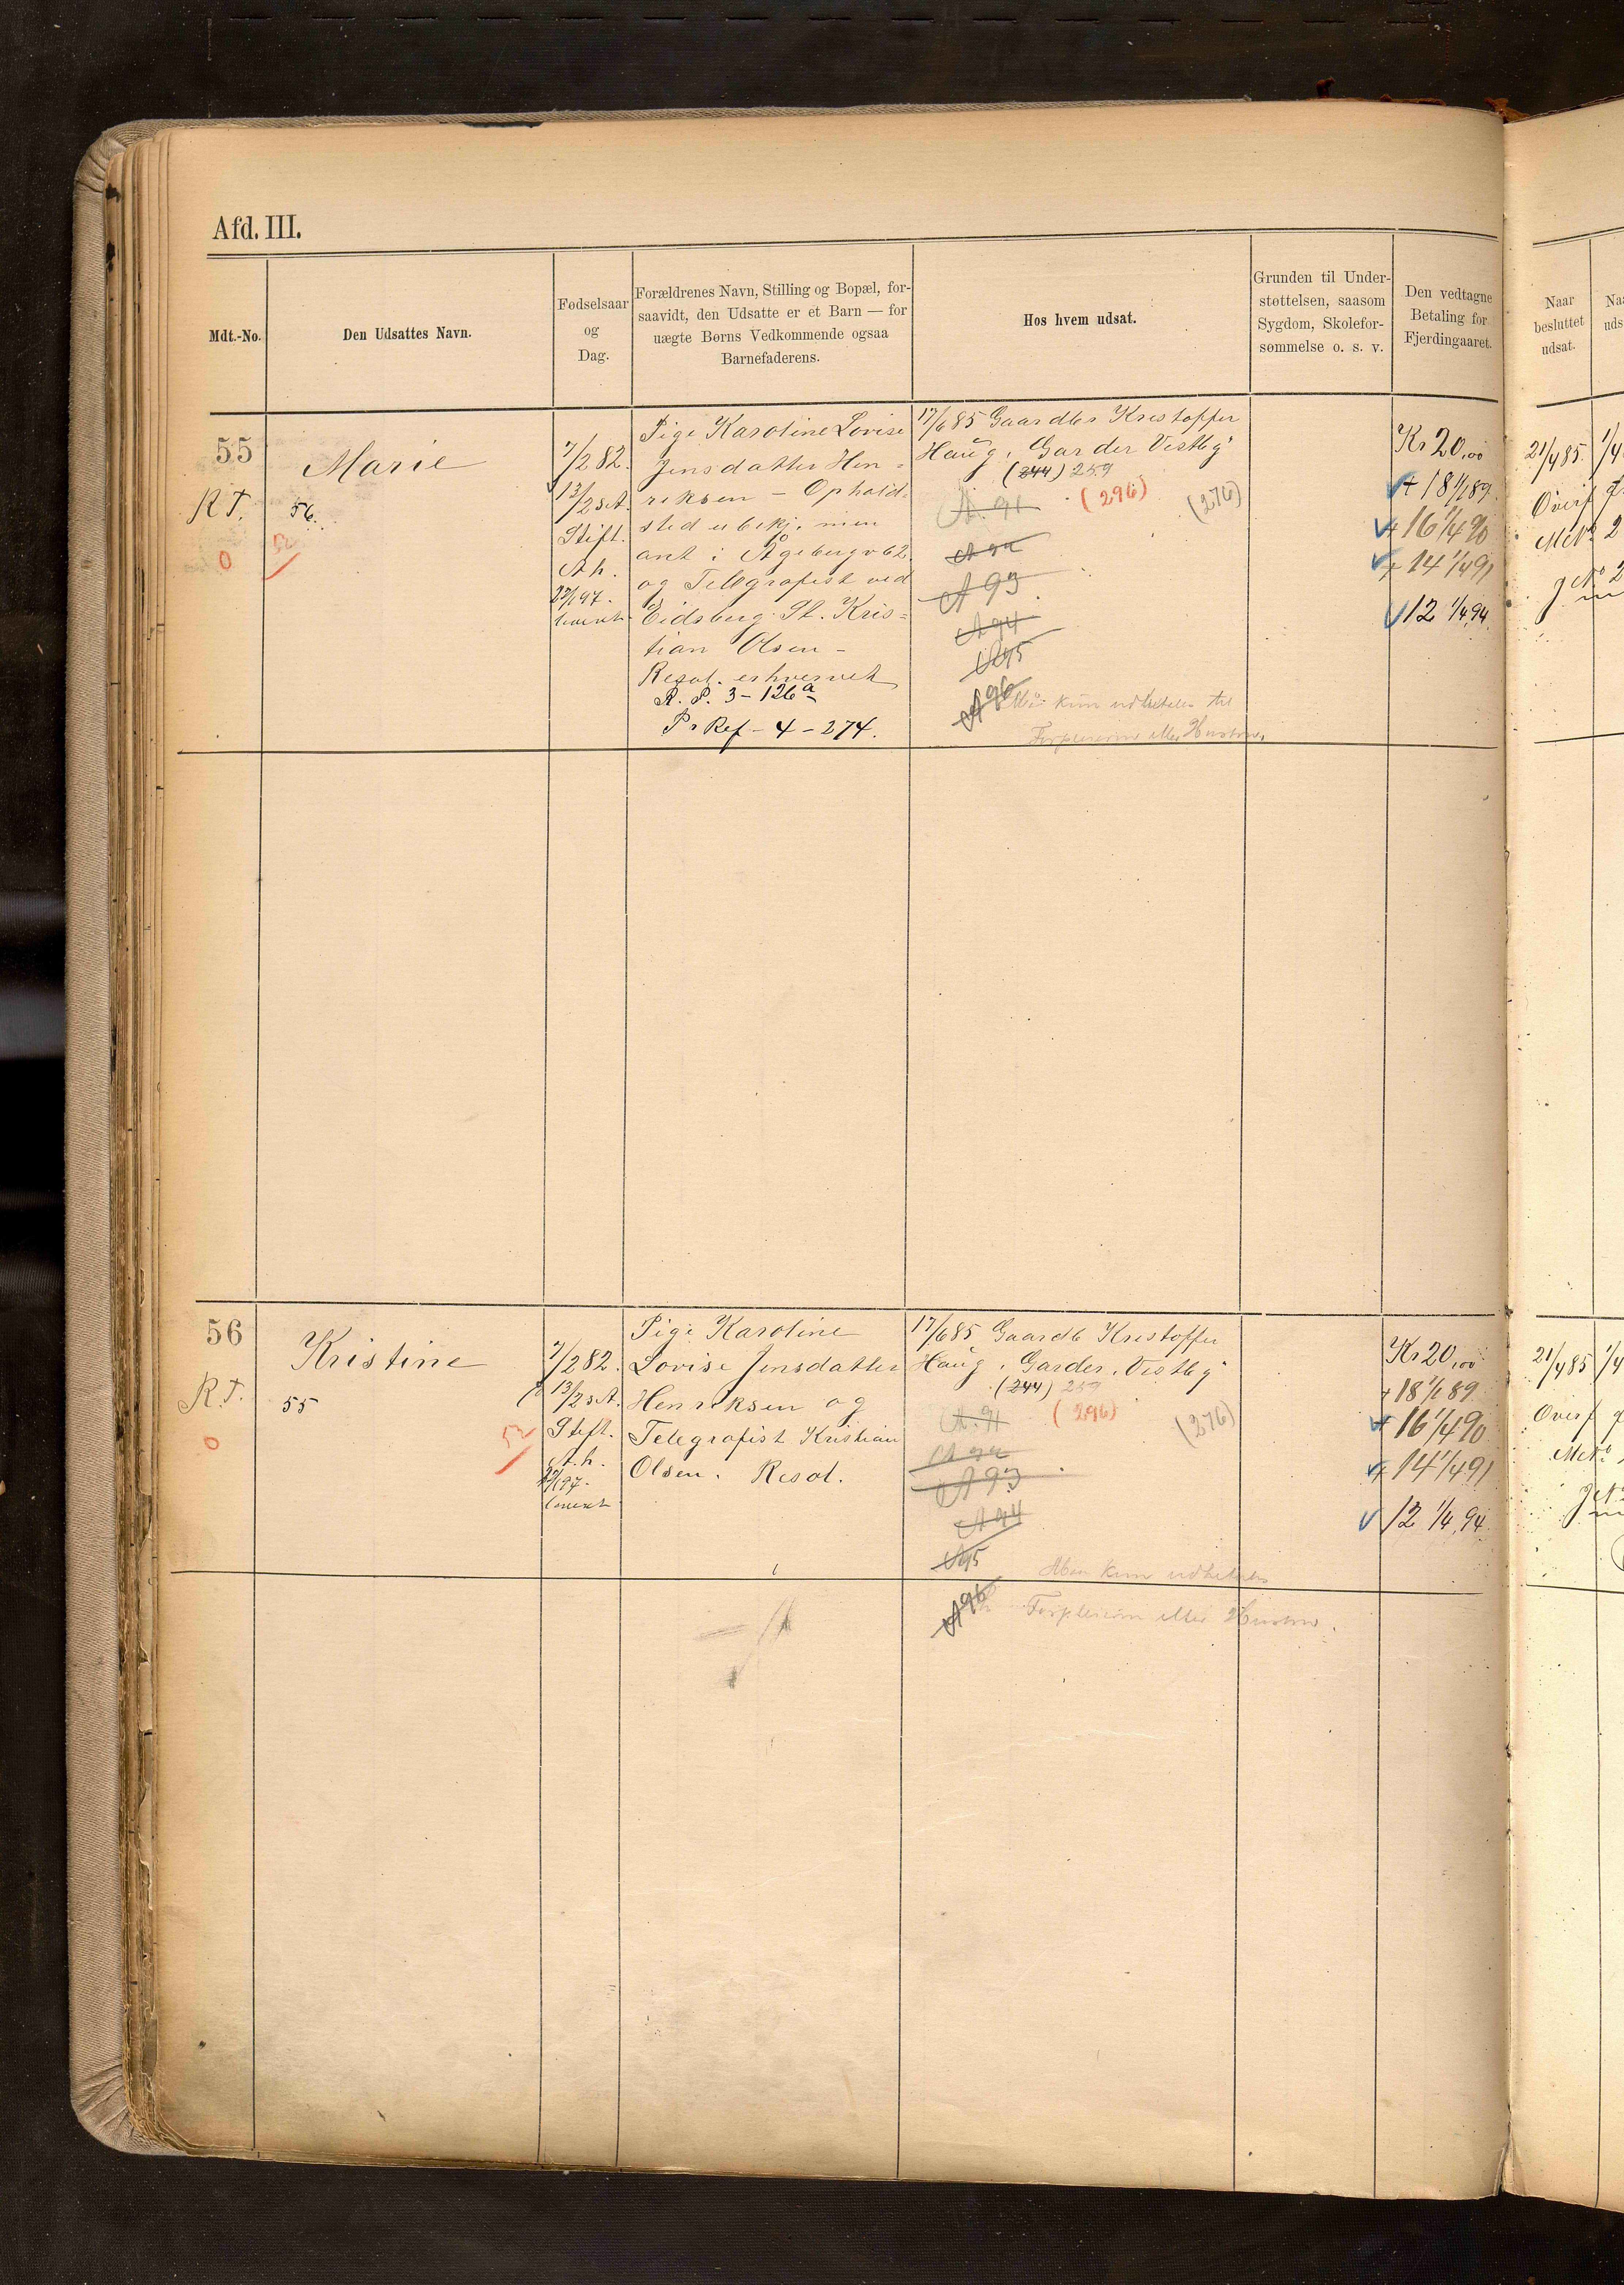 Afd. III.
Mdt.-No.
Den Udsattes Navn.
Fødselsaar
og
Dag.
Forældrenes Navn, Stilling og Bopæl, for-
saavidt, den Udsatte er et Barn — for
uægte Børns Vedkommende ogsaa
Barnefaderens.
Hos hvem udsat.
Grunden til Under-
støttelsen, saasom
Sygdom, Skolefor-
sømmelse o. s. v.
Den vedtagne
Betaling for
Fjerdingaaret.
Naar
besluttet
udsat.
55
R.T.
0
Marie
56.
52
7/2 82.
13/2
Stift.
A.h.
Pige Karoline Lovise
Jensdatter Hen=
riksen – Ophold-
sted ubekj. men
ant i Ågebergv 62
og Telegrafist ved
Eidsberg St. Kris=
tian Olsen –
Resol. erhvervet
R. P. 3 – 126a
Pr Ref – 4 – 274.
17/6 85 Gaardbr Kristoffer
Haug, Garder Vestby
(244) 259
(296)
(276)
A. 91
A 92
A 93
A 94
A 95
A 96
kun udbetales til
Forpleieren eller Hustru.
Kr 20,00
+ 18 1/1 89
+ 16 1/4 90
+ 14 1/4 91
12 1/4 94
21/4 85
Overf
56
R.T.
0
Kristine
55
52
7/2 82.
13/2
Stift.
A.h.
Pige Karoline
Lovise Jensdatter
Henriksen og
Telegrafist Kristian
Olsen. Resol.
17/6 85 Gaardb Kristoffer
Haug, Garder, Vestby
(244) 259
(296)
(276)
A. 91
A 92
A 93
A 94
A 95
A 96
kun udbetales
Forpleieren eller Hustru.
Kr 20,00
+ 18 1/1 89
+ 16 1/4 90
+ 14 1/4 91
12 1/4 94
21/4 85
Overf